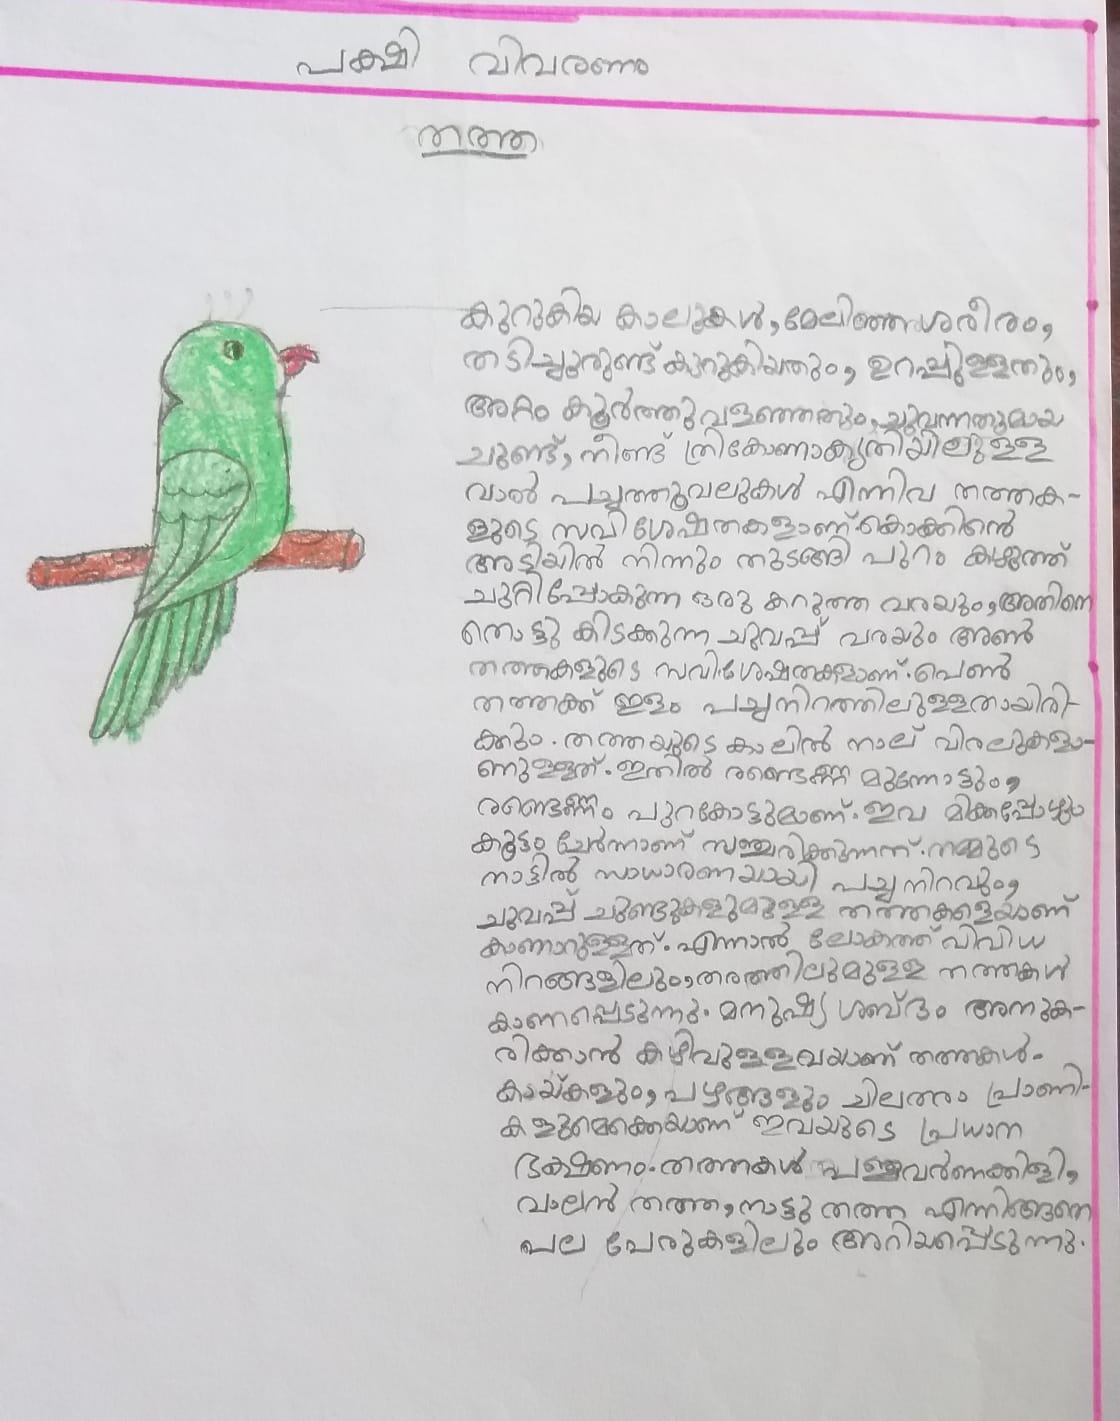 പക്ഷി വിവരണം
തത്ത
കുറുകിയ കാലുകൾ, മേലിഞ്ഞ ശരീരം,
തടിച്ചുരുണ്ട് കുറുകിയതും, ഉറപ്പുള്ളതും,
അറ്റം കൂർത്തു വളഞ്ഞതും, ചുവന്നതുമായ
ചുണ്ട്, നീണ്ട് ത്രികോണാകൃതിയിലുള്ള
വാൽ പച്ചത്തൂവലുകൾ എന്നിവ തത്തക-
ളുടെ സവിശേഷതകളാണ്. കൊക്കിൻെ
അടിയിൽ നിന്നും തുടങ്ങി പുറം കഴുത്ത്
ചുറ്റിപ്പോകുന്ന ഒരു കറുത്ത വരയും, അതിനെ
തൊട്ടു കിടക്കുന്ന ചുവപ്പ് വരയും അൺ
തത്തകളുടെ സവിശേഷതകളാണ്. പെൺ
തത്തക്ക് ഇളം പച്ചനിറത്തിലുള്ളതായിരി-
ക്കും. തത്തയുടെ കാലിൽ നാല് വിരലുകളാ-
ണുള്ളത്. ഇതിൽ രണ്ടെണ്ണ മുന്നോട്ടും,
രണ്ടെണ്ണം പുറകോട്ടുമാണ്. ഇവ മിക്കപ്പോഴും
കൂട്ടം ചേർന്നാണ് സഞ്ചരിക്കുന്നത്. നമ്മുടെ
നാട്ടിൽ സാധാരണയായി പച്ച നിറവും,
ചുവപ്പ് ചുണ്ടുകളുമുള്ള തത്തകളെയാണ്
കാണാറുള്ളത്. എന്നാൽ ലോകത്ത് വിവിധ
നിറങ്ങളിലും, തരത്തിലുമുള്ള തത്തകൾ
കാണപ്പെടുന്നു. മനുഷ്യ ശബ്ദം അനുക-
രിക്കാൻ കഴിവുള്ളവയാണ് തത്തകൾ.
കായ്കളും, പഴങ്ങളും ചിലതരം പ്രാണി-
കളുമൊക്കെയാണ് ഇവയുടെ പ്രധാന
ഭക്ഷണം. തത്തകൾ പഞ്ചവർണക്കിളി,
വാലൻ തത്ത, നാട്ടു തത്ത എന്നിങ്ങനെ
പല പേരുകളിലും അറിയപ്പെടുന്നു.